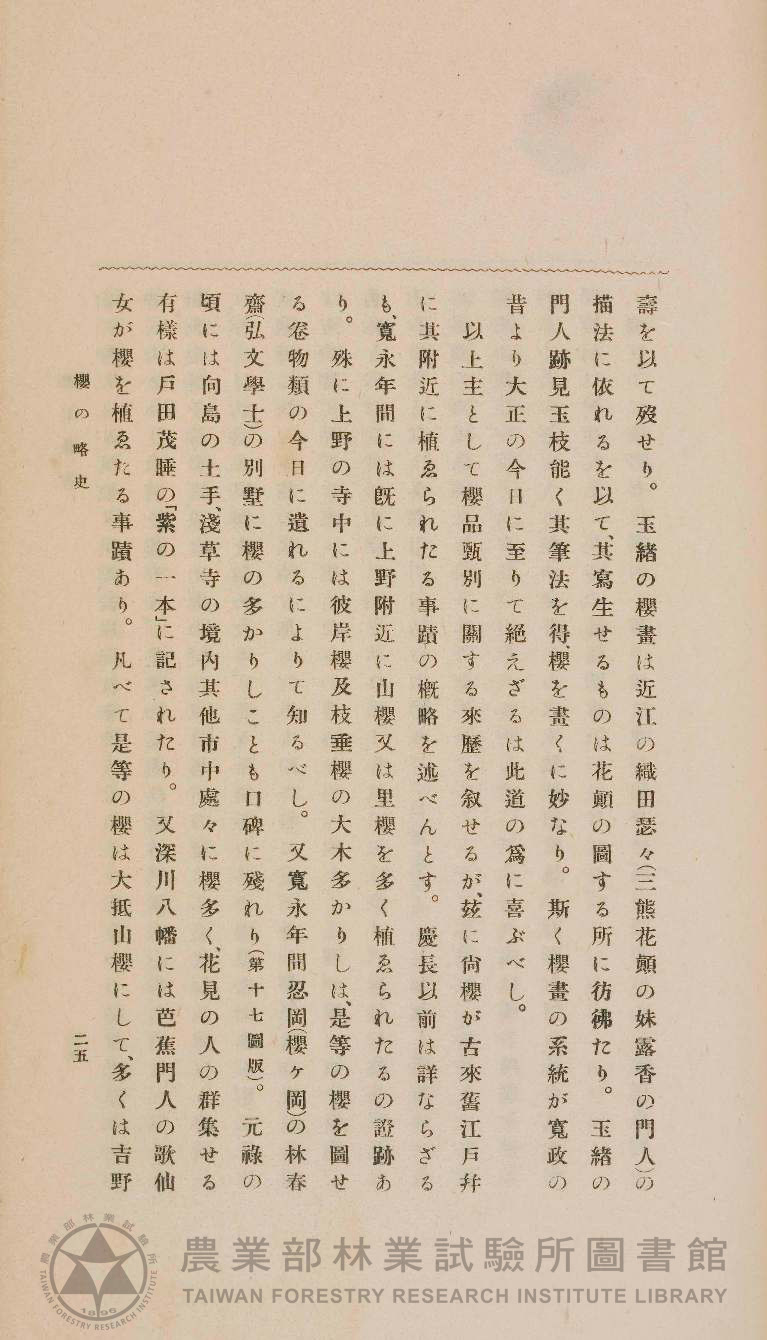 壽を以て歿せり。玉緒の櫻畫は近江の織田瑟々(三熊花顛の妹露香の門人)の
描法に依れるを以て、其寫生せるものは花顛の圖する所に彷彿たり。玉緒の
門人跡見玉枝能く其筆法を得、櫻を畫くに妙なり。斯く櫻畫の系統が寛政の
昔より大正の今日に至りて絶えざるは此道の爲に喜ぶべし。
以上主として櫻品甄別に關する來歷を叙せるが、玆に尙櫻が古來舊江戶幷
に其附近に植ゑられたる事蹟の槪略を述べんとす。慶長以前は詳ならざる
も、寬永年間には旣に上野附近に山櫻又は里櫻を多く植ゑられたるの證跡あ
り。殊に上野の寺中には彼岸櫻及枝垂櫻の大木多かりしは、是等の櫻を圖せ
る卷物類の今日に遺れるによりて知るべし。又寬永年間忍岡(櫻ヶ岡)の林春
齋(弘文學士)の別墅に櫻の多かりしことも口碑に殘れり(第十七圖版)。元祿の
頃には向島の土手、淺草寺の境內其他市中處々に櫻多く、花見の人の群集せる
有樣は戶田茂睡の「紫の一本」に記されたり。又深川八幡には芭蕉門人の歌仙
女が櫻を植ゑたる事蹟あり。凡べて是等の櫻は大抵山櫻にして、多くは吉野
櫻の略史
二五
農業部林業試驗所圖書館
TAIWAN FORESTRY RESEARCH INSTITUTE LIBRARY
農業部林業試驗所
TAIWAN FORESTRY RESEARCH INSTITUTE
1896